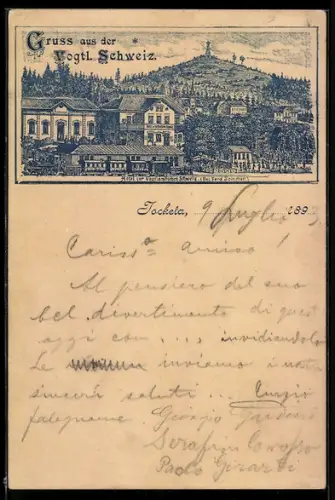 Gruss aus der
Vogtl. Schweiz.
Hotel zur Vogtländischen Schweiz
Jocketa, 9 Luglio 1893
Cariss° amico!
Al pensiero del suo
bel divertimento di quest'
oggi con ..., invidiandolo
Le inviamo i nostri
sinceri saluti ...
falegname. Giorgio
Serafin
Paolo Girardi